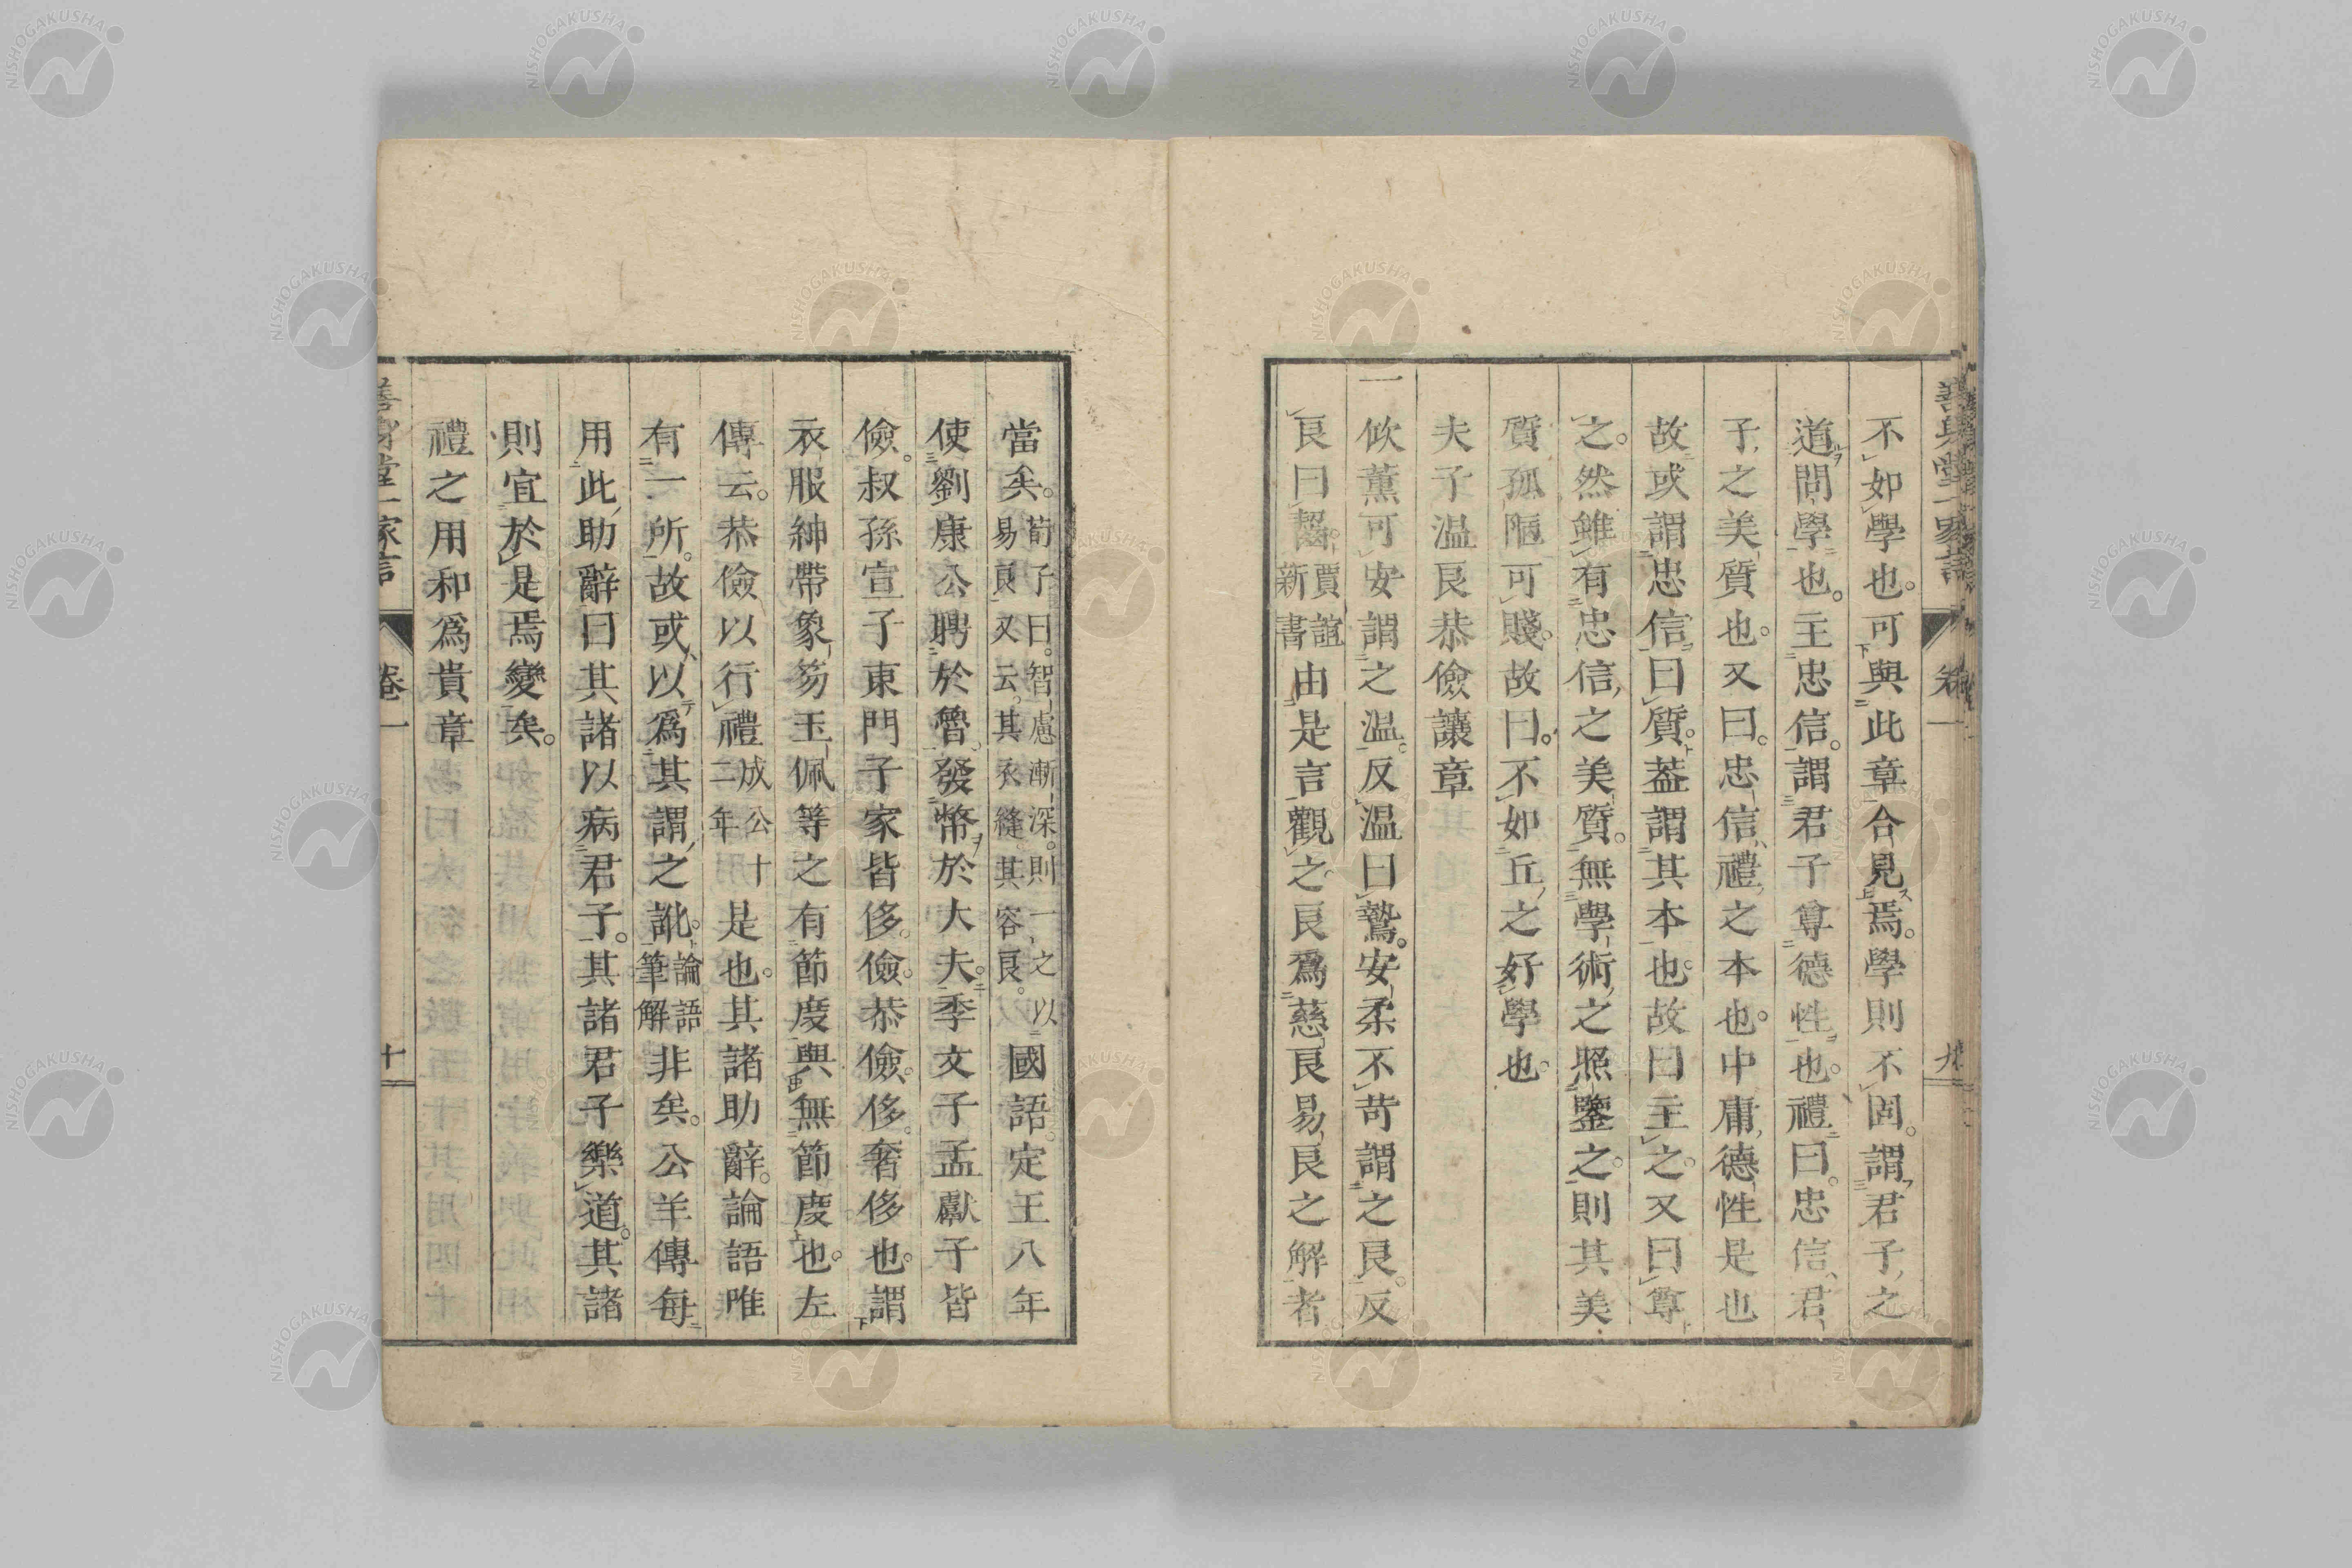 不如學也。可與此章合見焉。學則不固。謂君子之
道問學也。主忠信。謂君子尊德性也。禮曰。忠信君
子之美質也。又曰。忠信禮之本也。中庸德性是也
故或謂忠信曰質。葢謂其本也。故曰主之。又曰尊
之。然雖有忠信之美質。無學術之照鑒之。則其美
質孤陋可賤。故曰。不如丘之好學也。
夫子温良恭儉讓章
一
欣薰可安謂之温。反温曰鷙。安柔不苛謂之良。反
良曰齧。賈誼新書由是言觀之。良爲慈良易良之解者
善身堂一家言 卷一 九
當矣。荀子曰。智慮漸深。則一之以易良又云。其衣縫。其容良。國語。定王八年
使劉康公聘於魯、發幣於大夫。季文子孟獻子皆
儉。叔孫宣子東門子家皆侈。儉。恭儉。侈。奢侈也。謂
衣服紳帶象笏玉佩等之有節度與無節度也。左
傳云。恭儉以行禮成公十二年是也。其諸助辭。論語唯
有一所。故或以爲其謂之訛。論語筆解非矣。公羊傳每
用此助辭曰其諸以病君子。其諸君子樂道。其諸
則宜於是焉變矣。
禮之用和爲貴章
善身堂一家言 卷一 十
NISHOGAKUSHA